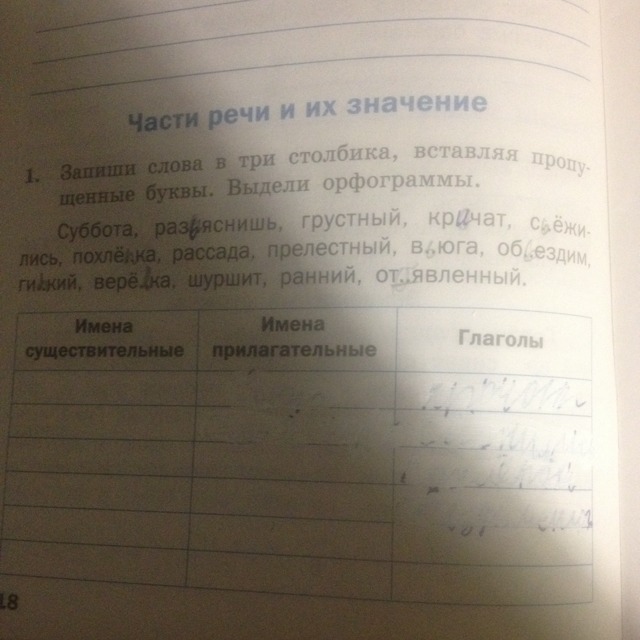 Части речи и их значение
1. Запиши слова в три столбика, вставляя пропу-
щенные буквы. Выдели орфограммы.
Суббота, разъяснишь, грустный, кричат, съёжи-
лись, похлёбка, рассада, прелестный, вьюга, объездим,
гибкий, верёвка, шуршит, ранний, отъявленный.
Имена существительные
Имена прилагательные
Глаголы
18